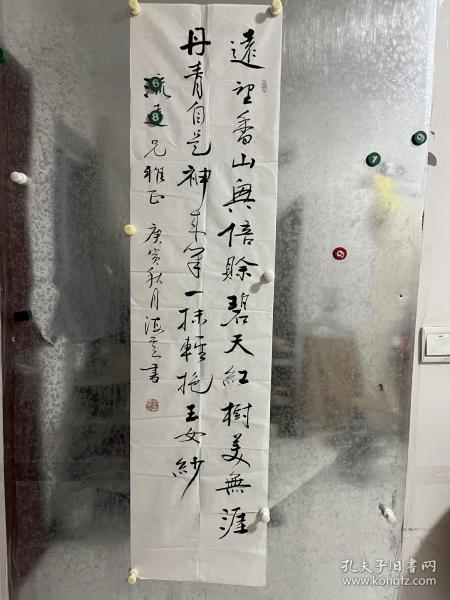 遠望香山興倍賒碧天紅樹美無涯
丹青自是神来筆一抹輕拖玉女紗
兄雅正 庚寅秋月 書
孔夫子旧书网
www.kongfz.com
8
8
7
9
9